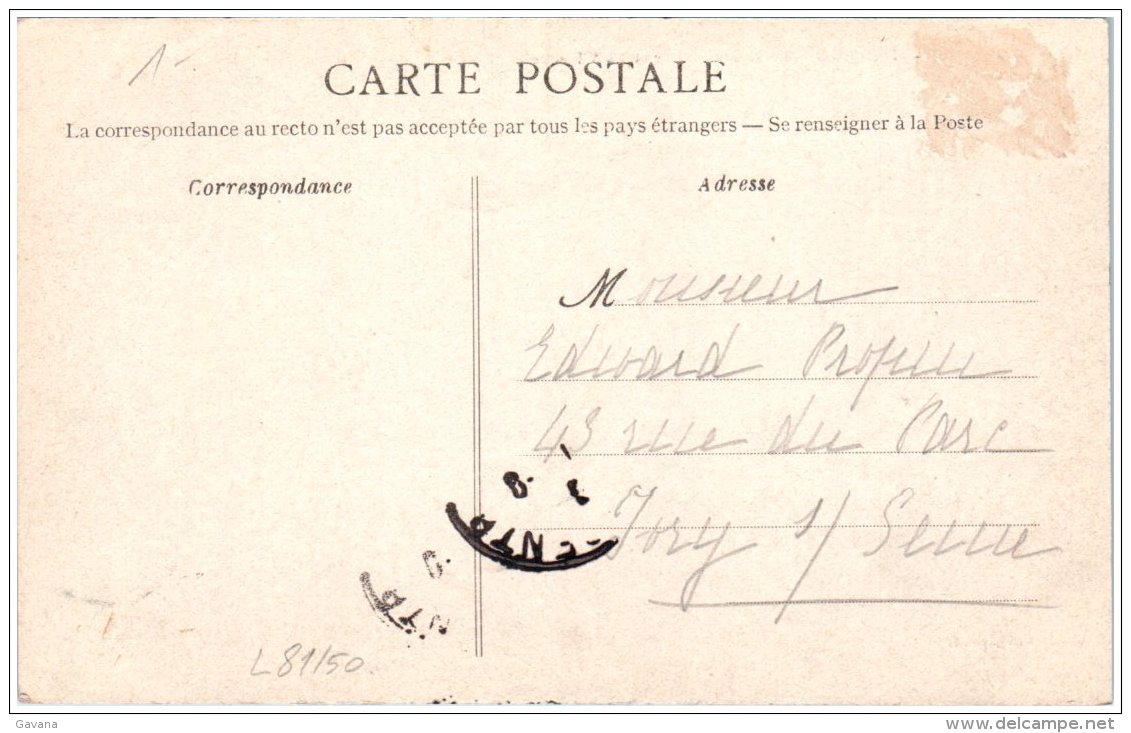 1-
CARTE POSTALE
La correspondance au recto n'est pas acceptée par tous les pays étrangers — Se renseigner à la Poste
Correspondance
Adresse
Monsieur
Edouard
43 rue du Parc
Ivry s/ Seine
L81/50.
Gavana
www.delcampe.net